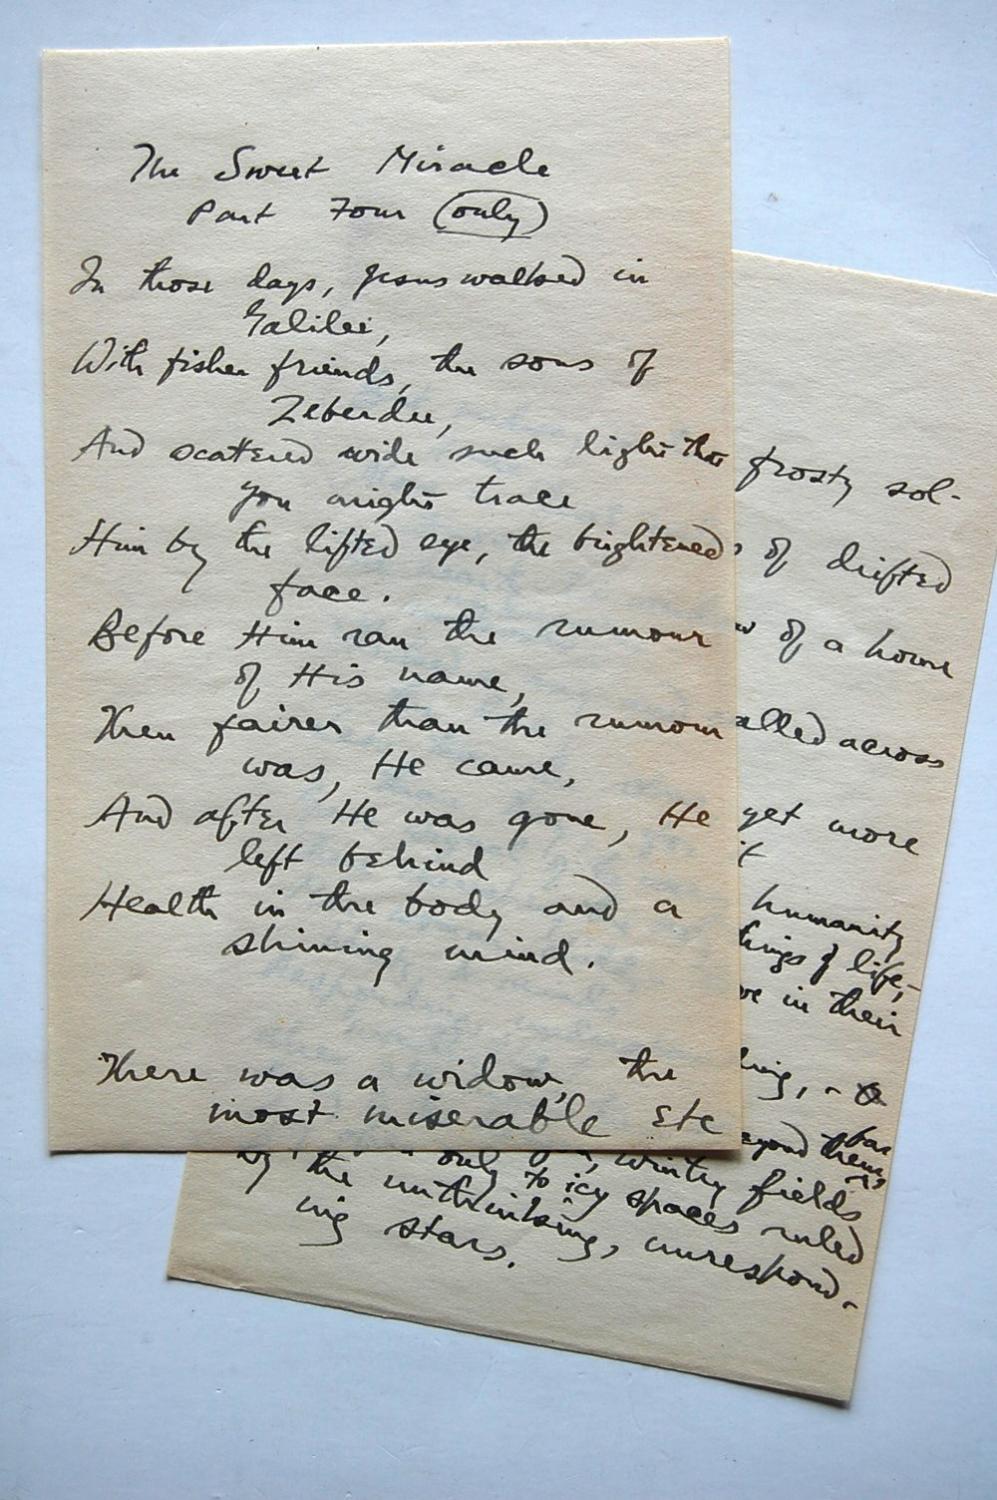 The Sweet Miracle
Part Four (only)
In those days, Jesus walked in
Galilee,
With fisher friends, the sons of
Zebedee,
And scattered wide such light that
you might trace
Him by the lifted eye, the brightened
face.
Before Him ran the rumour
of His name,
Then fairer than the rumour
was, He came,
And after He was gone, He
left behind
Health in the body and a
shining mind.
There was a widow, the
most miserable Etc
frosty sol-
of drifted
of a home
alled across
yet more
it
humanity
hings of life,
ve in their
ing, -
eyond them,
wintry fields
only to icy spaces ruled
by the unthinking, unrespond-
ing stars.